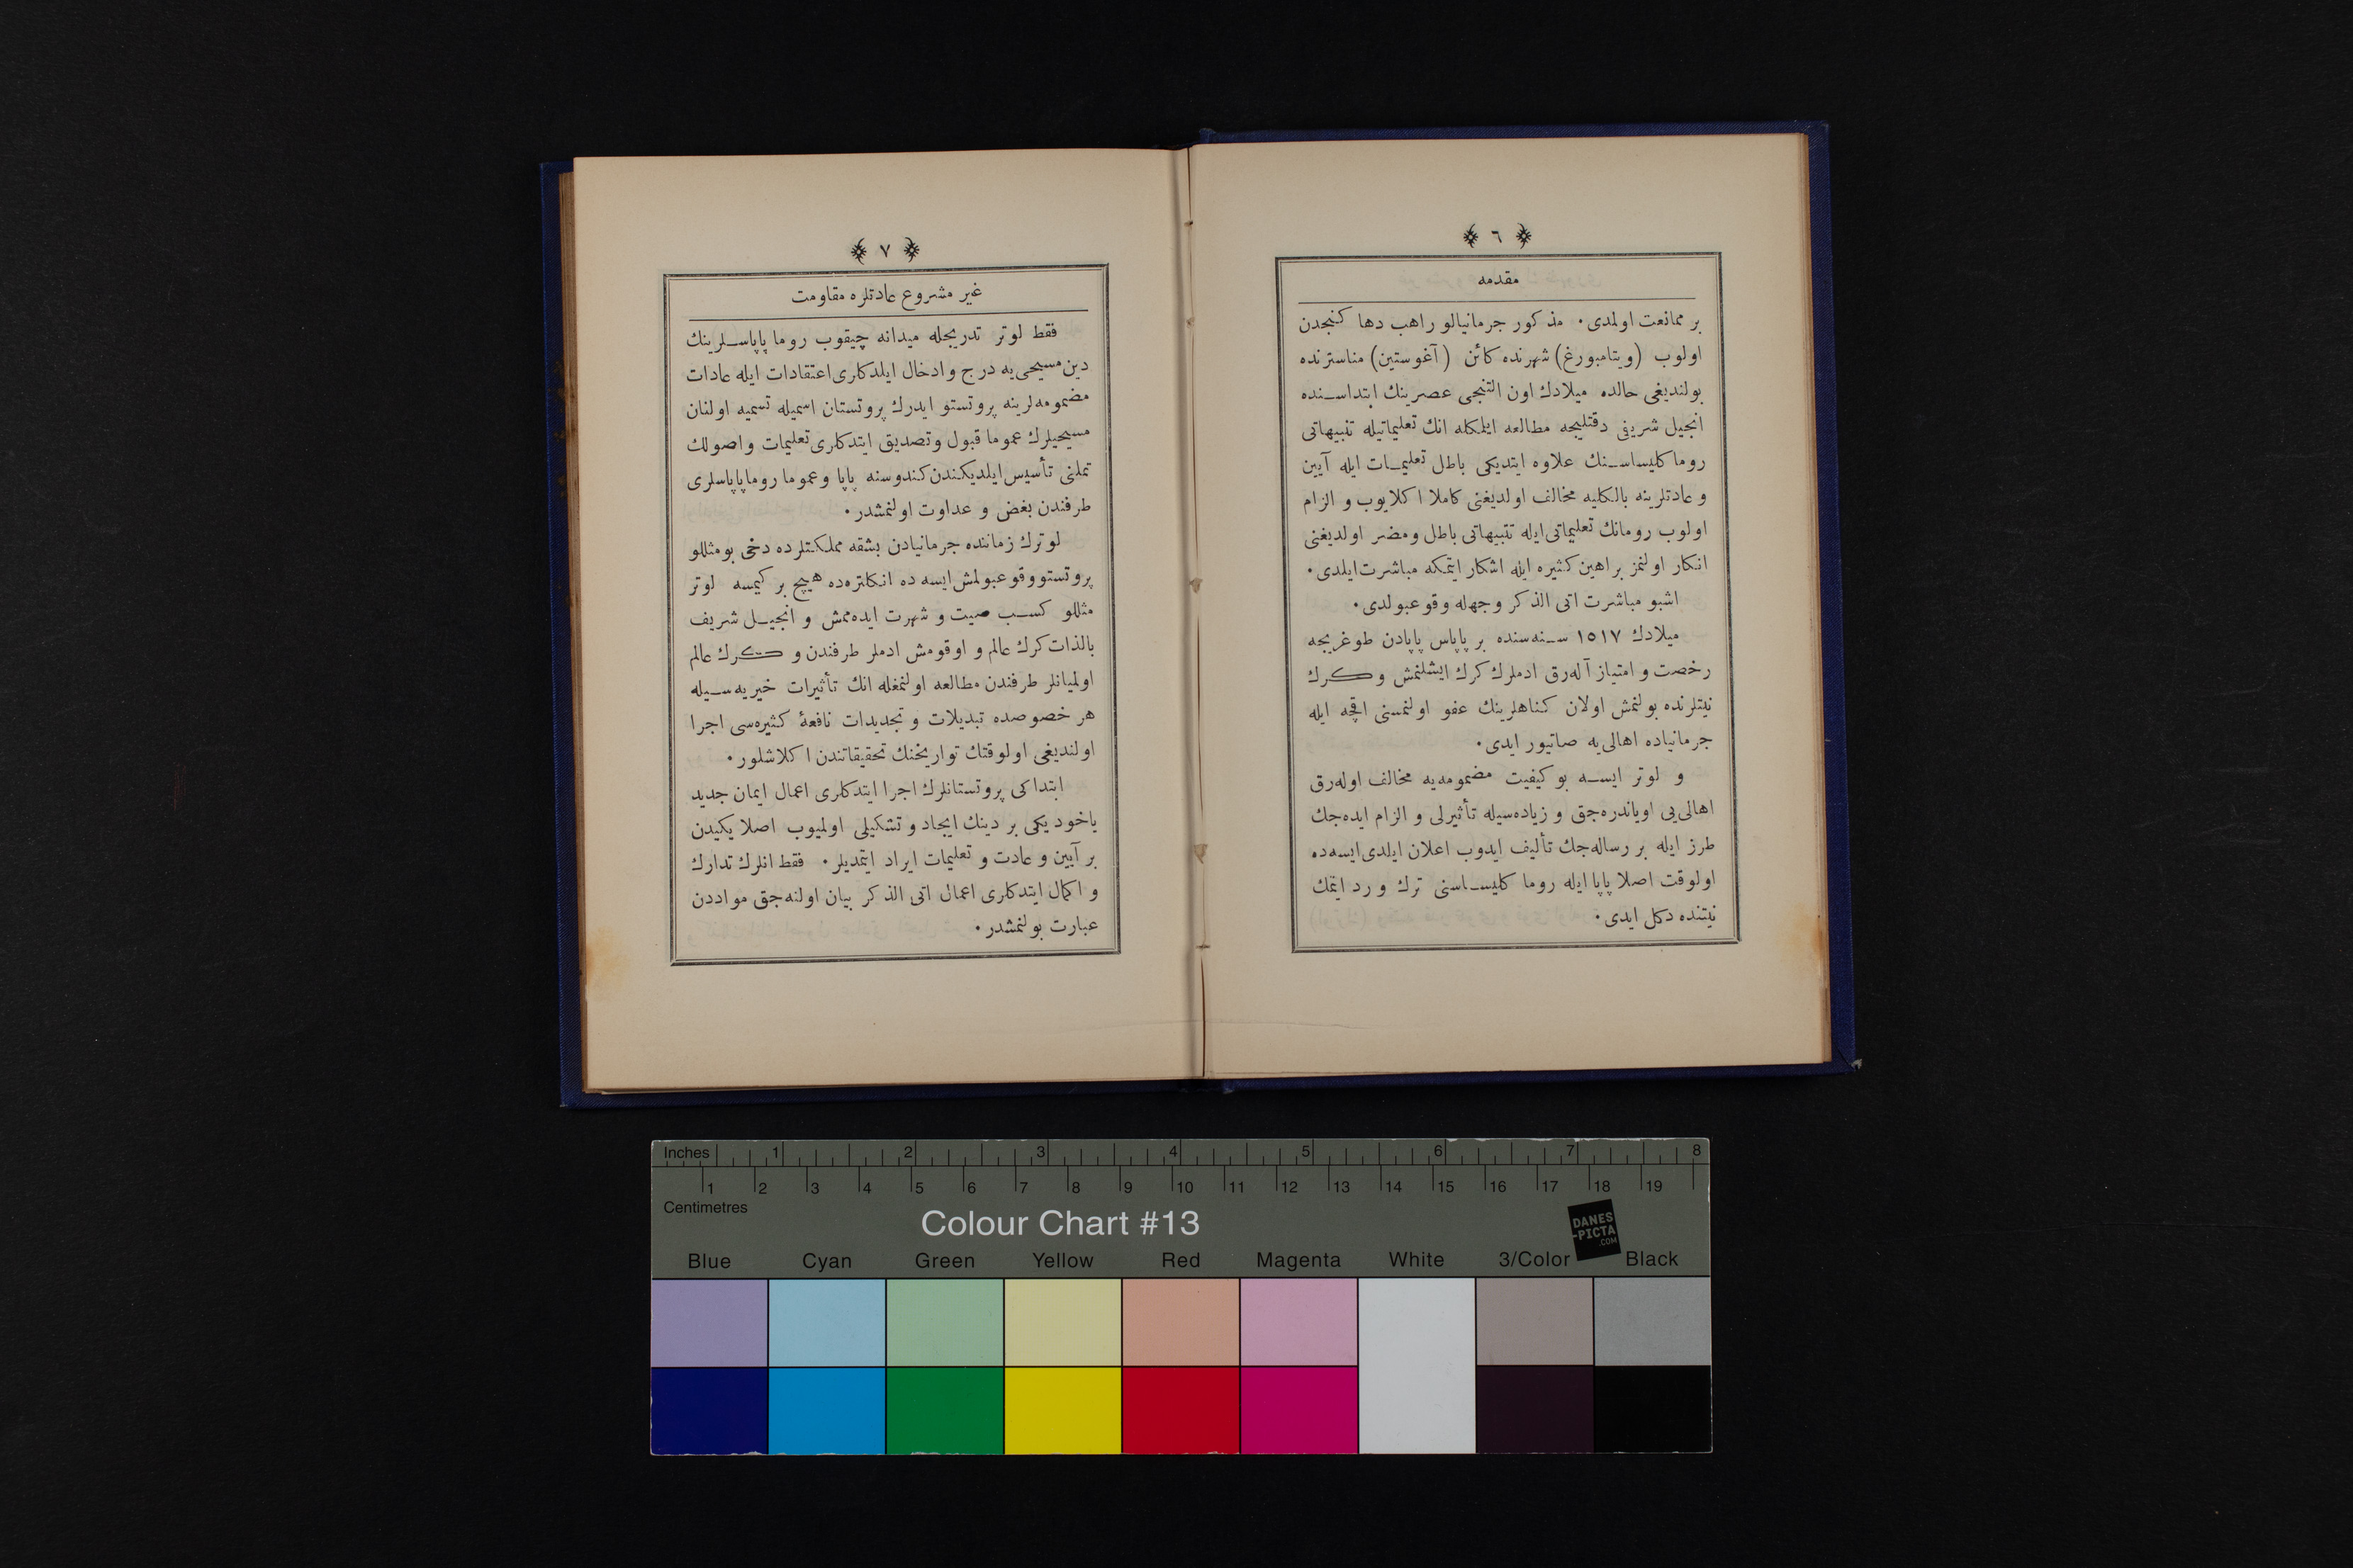 ٦
مقدمه
بر ممانعت اولمدی. مذكور جرمانيالو راهب دها كنجدن
اولوب (ويتامبورغ) شهرنده كائن (آغوستين) مناسترنده
بولنديغی حالده ميلادك اون التنجی عصرينك ابتداسنده
انجيل شريفی دقتليجه مطالعه ايلمكله انك تعليماتيله تنبيهاتی
روما كليساسنك علاوه ايتديكی باطل تعليمات ايله آيين
و عادتلرينه بالكليه مخالف اولديغنی كاملا اكلايوب و الزام
اولوب رومانك تعليماتی ايله تنبيهاتی باطل ومضر اولديغنی
انكار اولنمز براهين كثيره ايله اشكار ايتمكه مباشرت ايلدی.
اشبو مباشرت اتی الذكر وجهله وقوعبولدی.
ميلادك ١٥١٧ سنه سنده بر پاپاس پاپادن طوغريجه
رخصت و امتياز آله رق ادملرك كرك ايشلنمش وكرك
نيتلرنده بولنمش اولان كناهلرينك عفو اولنمسنی اقچه ايله
جرمانياده اهالی يه صاتيور ايدی.
و لوتر ايسه بو كيفيت مضمومه يه مخالف اوله رق
اهالی يی اوياندره جق و زياده سيله تأثيرلی و الزام ايده جك
طرز ايله بر رساله جك تأليف ايدوب اعلان ايلدی ايسه ده
اولوقت اصلا پاپا ايله روما كليساسنی ترك و رد ايتمك
نيتنده دكل ايدی.
٧
غير مشروع عادتلره مقاومت
فقط لوتر تدريجله ميدانه چيقوب روما پاپاسلرينك
دين مسيحی يه درج وادخال ايلدكلری اعتقادات ايله عادات
مضمومه لرينه پروتستو ايدرك پروتستان اسميله تسميه اولنان
مسيحيلرك عموما قبول وتصديق ايتدكلری تعليمات واصولك
تملنی تأسيس ايلديكندن كندوسنه پاپا وعموما روما پاپاسلری
طرفندن بغض و عداوت اولنمشدر.
لوترك زماننده جرمانيادن بشقه مملكتلرده دخی بومثللو
پروتستو وقوعبولمش ايسه ده انكلتره ده هيچ بر كيمسه لوتر
مثللو كسب صيت و شهرت ايده ممش و انجيل شريف
بالذات كرك عالم و اوقومش ادملر طرفندن و كرك عالم
اولميانلر طرفندن مطالعه اولنمغله انك تأثيرات خيريه سيله
هر خصوصده تبديلات و تجديدات نافعهٔ كثيره سی اجرا
اولنديغی اولوقتك تواريخنك تحقيقاتندن اكلاشلور.
ابتداكی پروتستانلرك اجرا ايتدكلری اعمال ايمان جديد
ياخود يكی بر دينك ايجاد وتشكيلی اولميوب اصلا يكيدن
بر آيين و عادت و تعليمات ايراد ايتمديلر. فقط انلرك تدارك
و اكمال ايتدكلری اعمال اتی الذكر بيان اولنه جق مواددن
عبارت بولنمشدر.
Inches 1 2 3 4 5 6 7 8
1 2 3 4 5 6 7 8 9 10 11 12 13 14 15 16 17 18 19
Centimetres
Colour Chart #13
DANES
-PICTA
.COM
Blue Cyan Green Yellow Red Magenta White 3/Color Black